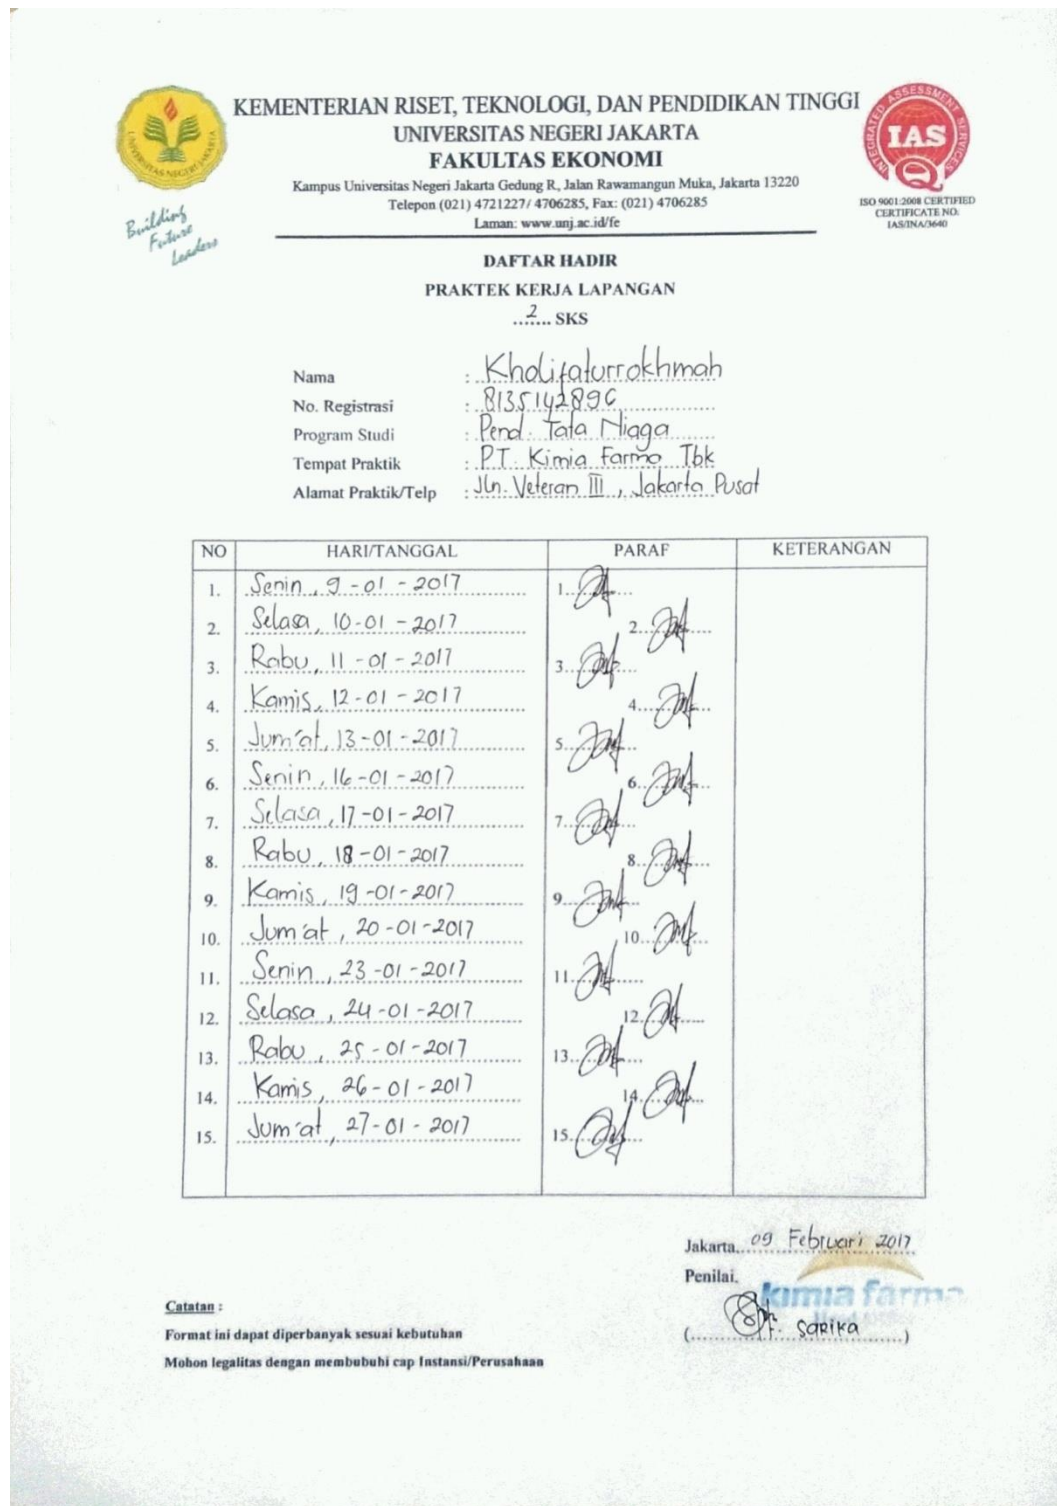 KEMENTERIAN RISET, TEKNOLOGI, DAN PENDIDIKAN TINGGI
UNIVERSITAS NEGERI JAKARTA
FAKULTAS EKONOMI
Kampus Universitas Negeri Jakarta Gedung R, Jalan Rawamangun Muka, Jakarta 13220
Telepon (021) 4721227/ 4706285, Fax: (021) 4706285
Laman: www.unj.ac.id/fe
UNIVERSITAS NEGERI JAKARTA
Building
Future
Leaders
INTEGRATED ASSESSMENT SERVICES
IAS
ISO 9001:2008 CERTIFIED
CERTIFICATE NO:
IAS/INA/3640
DAFTAR HADIR
PRAKTEK KERJA LAPANGAN
...2... SKS
Nama : Kholifaturrokhmah
No. Registrasi : 8135142896
Program Studi : Pend. Tata Niaga
Tempat Praktik : PT. Kimia Farma Tbk
Alamat Praktik/Telp : Jln. Veteran III, Jakarta Pusat
NO HARI/TANGGAL PARAF KETERANGAN
1. Senin, 9-01-2017 1.
2. Selasa, 10-01-2017 2.
3. Rabu, 11-01-2017 3.
4. Kamis, 12-01-2017 4.
5. Jum'at, 13-01-2017 5.
6. Senin, 16-01-2017 6.
7. Selasa, 17-01-2017 7.
8. Rabu, 18-01-2017 8.
9. Kamis, 19-01-2017 9.
10. Jum'at, 20-01-2017 10.
11. Senin, 23-01-2017 11.
12. Selasa, 24-01-2017 12.
13. Rabu, 25-01-2017 13.
14. Kamis, 26-01-2017 14.
15. Jum'at, 27-01-2017 15.
Jakarta, 09 Februari 2017
Penilai,
kimia farma
(...... SARIKA ......)
Catatan :
Format ini dapat diperbanyak sesuai kebutuhan
Mohon legalitas dengan membubuhi cap Instansi/Perusahaan